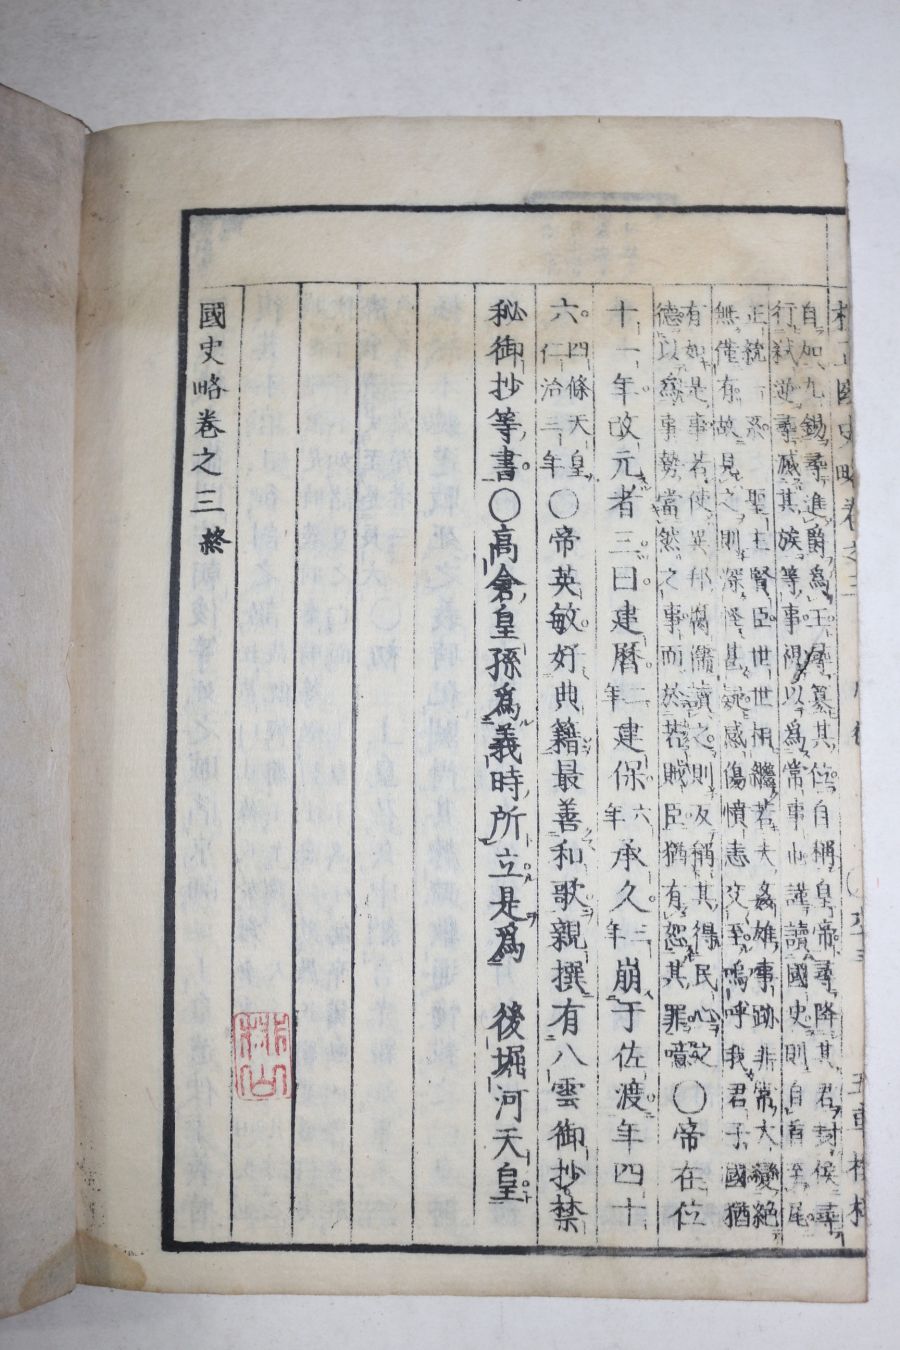 自加九錫尋進爵為王尋簒其位自稱皇帝尋降其君封侯尋
行弑逆尋滅其族等事視以為常事也謹讀國史則自首至尾
正統一系聖主賢臣世世相繼若夫姦雄事跡非常大變絕
無僅有故見之則深怪甚疑感傷憤恚交至嗚呼我君子國猶
有如是事若使異邦腐儒讀之則反稱其得民心之
德以為事勢當然之事而於若賊臣猶有恕其罪噫〇帝在位
十一年改元者三曰建曆二年建保六年承久三年崩于佐渡年四十
六四條天皇仁治三年〇帝英敏好典籍最善和歌親撰有八雲御抄禁
秘御抄等書〇高倉皇孫為義時所立是為 後堀河天皇
國史略卷之三終